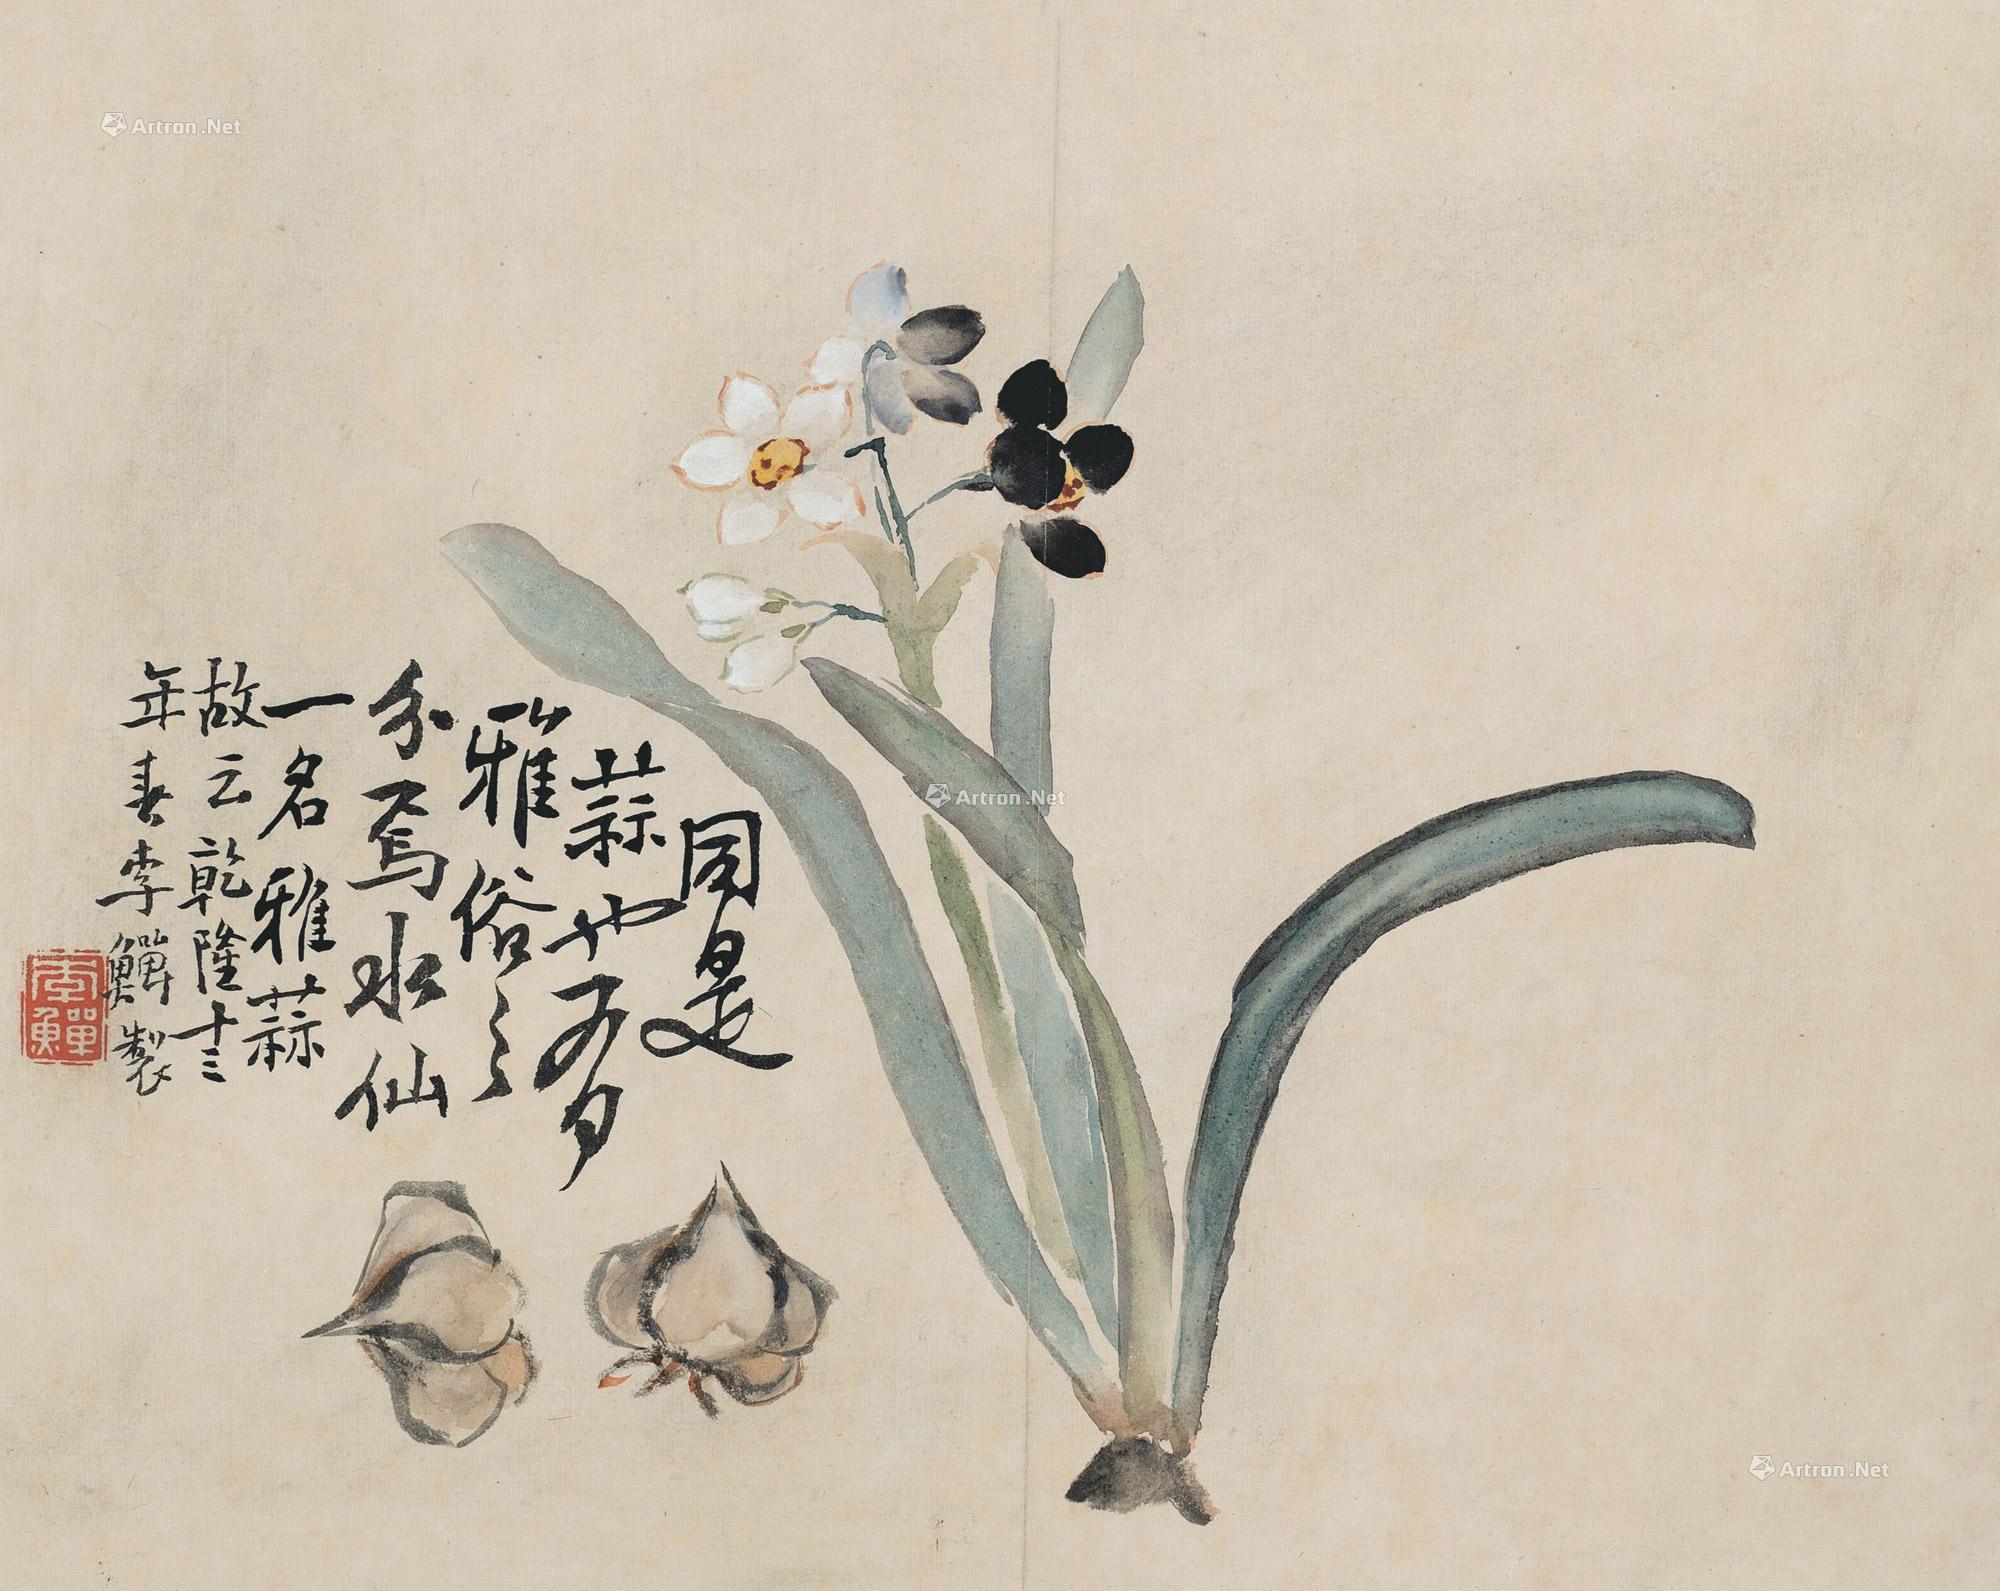 同是
蒜也而有
雅俗之
分焉水仙
一名雅蒜
故云乾隆十三
年春李鱓製
李鱓
Artron.Net
Artron.Net
Artron.Net